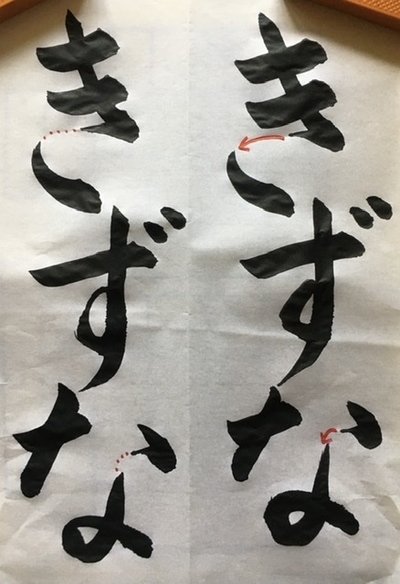 きずな
きずな